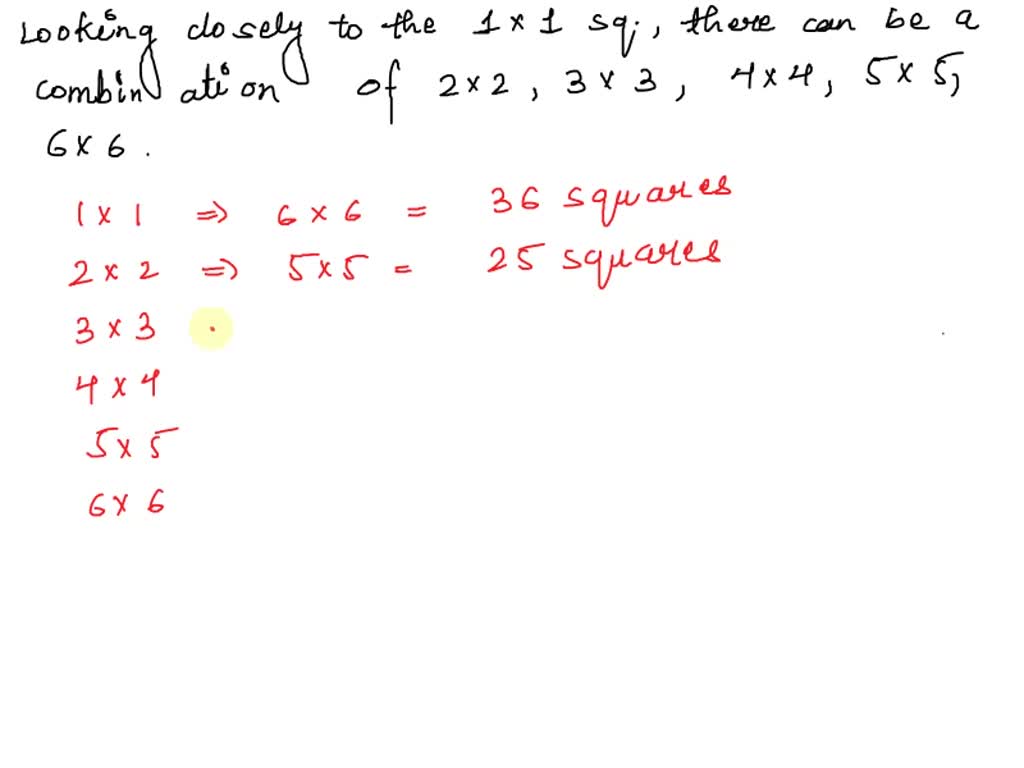 Looking closely to the 1 × 1 sq., there can be a
combination of 2 × 2, 3 × 3, 4 × 4, 5 × 5,
6 × 6.
1 × 1 ⇒ 6 × 6 = 36 squares
2 × 2 ⇒ 5 × 5 = 25 squares
3 × 3
4 × 4
5 × 5
6 × 6